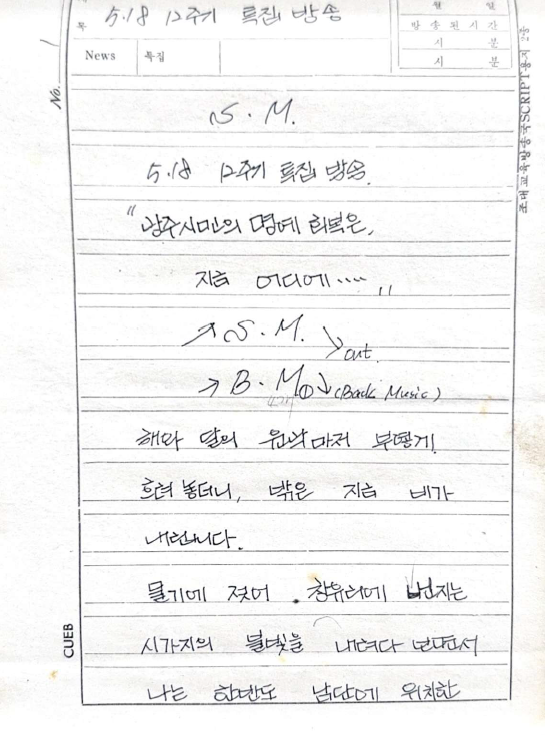 목 5.18 12주기 특집 방송
월 일
방송된시간
시 분
News 특집
시 분
No. 1
S.M.
5.18 12주기 특집 방송.
"광주시민의 명예 회복은,
지금 어디에....."
→ S.M. ↘ out.
→ B.M① ↓ (Back Music)
해와 달의 윤곽마저 부옇게
흐려 놓더니, 밖은 지금 비가
내립니다.
물기에 젖어 창유리에 번지는
시가지의 불빛을 내려다 보면서
나는 한반도 남단에 위치한
CUEB
조대교육방송국SCRIPT용지